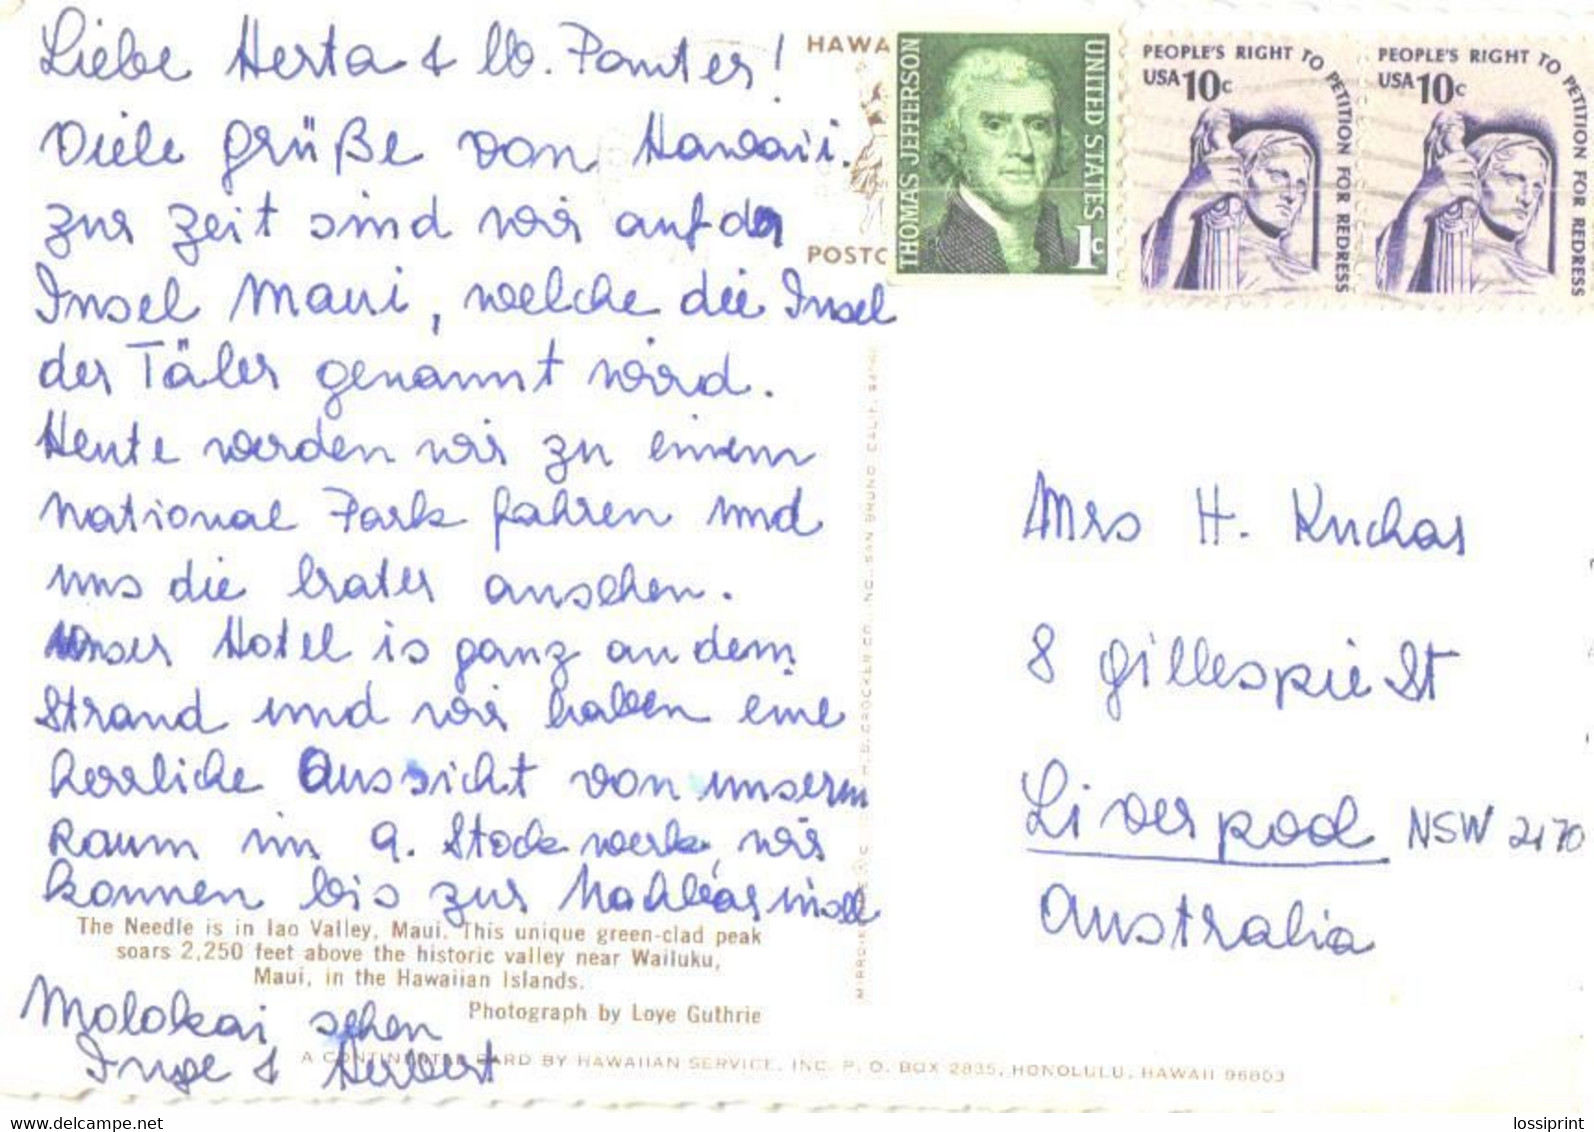 Liebe Herta & Co. Panter!
Viele grüße von Hawaii.
zur zeit sind wir auf der
Insel Maui, welche die Insel
der Täler genannt wird.
Heute werden wir zu einem
National Park fahren und
uns die krater ansehen.
Unser Hotel is ganz an dem
Strand und wir haben eine
herrliche Aussicht von unserm
Raum im 9. Stockwerk, wir
konnen bis zur Nachbarinsel
Molokai sehen
Inge & Herbert
The Needle is in Iao Valley, Maui. This unique green-clad peak
soars 2,250 feet above the historic valley near Wailuku,
Maui, in the Hawaiian Islands.
Photograph by Loye Guthrie
A CONTINENTAL CARD BY HAWAIIAN SERVICE, INC. P. O. BOX 2835, HONOLULU, HAWAII 96803
HAWA
POSTC
THOMAS JEFFERSON
UNITED STATES
1c
PEOPLE'S RIGHT TO PETITION FOR REDRESS
USA 10c
PEOPLE'S RIGHT TO PETITION FOR REDRESS
USA 10c
H.S. CROCKER CO., INC., SAN BRUNO, CALIF.
Mrs H. Kuchar
8 Gillespie St
Liverpool NSW 2170
Australia
lossiprint